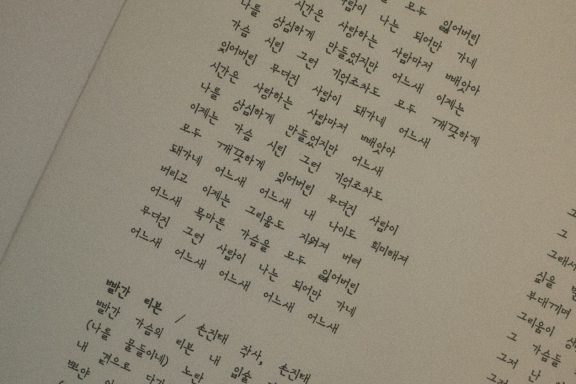 모두 잃어버린
사람이 나는 되어만 가네
시간은 사랑하는 사람마저 빼앗아
나를 상심하게 만들었지만 어느새 이제는
가슴 시린 그런 기억조차도 모두 깨끗하게
잊어버린 무뎌진 사람이 돼가네 어느새
시간은 사랑하는 사람마저 빼앗아
나를 상심하게 만들었지만 어느새
이제는 가슴 시린 그런 기억조차도
모두 깨끗하게 잊어버린 무뎌진 사람이
돼가네 어느새 어느새 내 나이도 희미해져
버티고 이제는 그리움도 지워져 버려
어느새 목마른 가슴을 모두 잃어버린
무뎌진 그런 사람이 나는 되어만 가네
어느새 어느새 어느새 어느새 어느새
빨간 리본 / 손진태 작사, 손진태
빨간 가슴의 리본 내 입술
(나를 물들이네) 노란
내 곁으로
뽀얀
그
그래서
싶을
부대끼며
그리움이
그 가슴들
그저 나